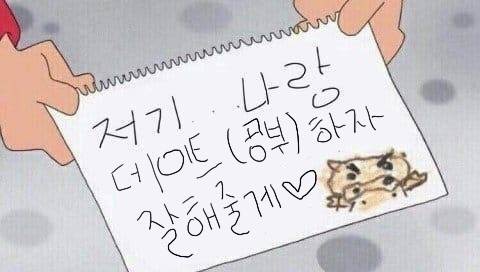 저기...나랑
데이트(공부)하자
잘해줄게♡